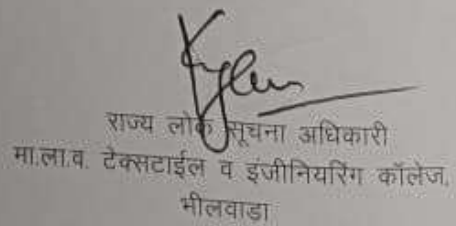 राज्य लोक सूचना अधिकारी
मा.ला.व. टेक्सटाईल व इंजीनियरिंग कॉलेज,
भीलवाड़ा